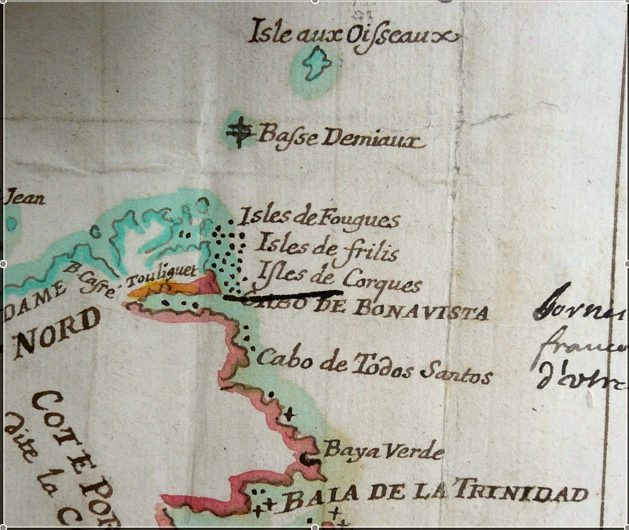 Isle aux Oiſſeaux
Baſse Demiaux
Jean
Isles de Fougues
Isles de frilis
Iſles de Corques
Touliguet
CABO DE BONAVISTA
DAME
NORD
Cabo de Todos Santos
COTE POR
dite la C
Baya Verde
BAIA DE LA TRINIDAD
bornes
d'outre